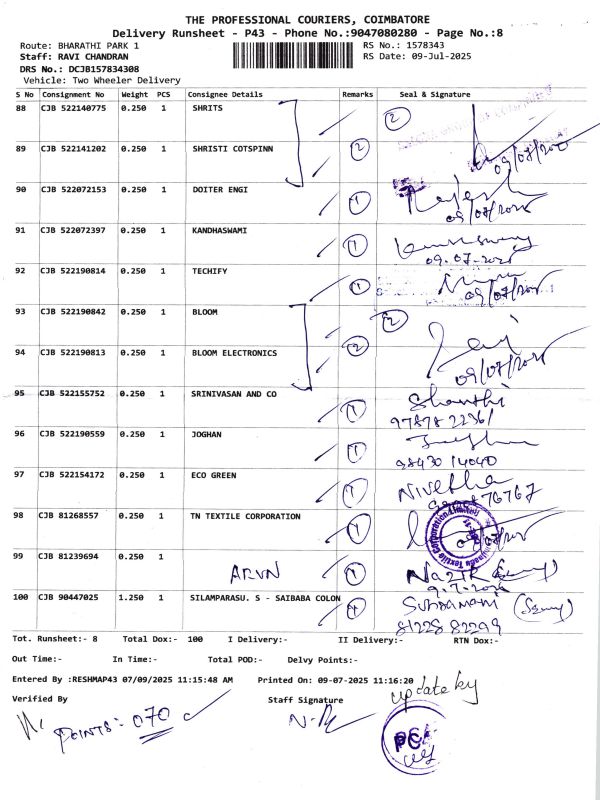 THE PROFESSIONAL COURIERS, COIMBATORE
Delivery Runsheet - P43 - Phone No.:9047080280 - Page No.:8
Route: BHARATHI PARK 1 RS No.: 1578343
Staff: RAVI CHANDRAN RS Date: 09-Jul-2025
DRS No.: DCJB157834308
Vehicle: Two Wheeler Delivery
S No Consignment No Weight PCS Consignee Details Remarks Seal & Signature
88 CJB 522140775 0.250 1 SHRITS 2
89 CJB 522141202 0.250 1 SHRISTI COTSPINN 2 09/07/2025
90 CJB 522072153 0.250 1 DOITER ENGI 1 09/07/2025
91 CJB 522072397 0.250 1 KANDHASWAMI 1
09.07.2025
92 CJB 522190814 0.250 1 TECHIFY 1 09/07/2025
93 CJB 522190842 0.250 1 BLOOM 2
94 CJB 522190813 0.250 1 BLOOM ELECTRONICS 2 09/07/2025
95 CJB 522155752 0.250 1 SRINIVASAN AND CO 1 Shanthi
97878 22361
96 CJB 522190559 0.250 1 JOGHAN 1
98430 14040
97 CJB 522154172 0.250 1 ECO GREEN 1 Nivetha
98 CJB 81268557 0.250 1 TN TEXTILE CORPORATION 1
99 CJB 81239694 0.250 1 ARUN 1
9.7.2025
100 CJB 90447025 1.250 1 SILAMPARASU. S - SAIBABA COLON 1
81228 82299
Tot. Runsheet:- 8 Total Dox:- 100 I Delivery:- II Delivery:- RTN Dox:-
Out Time:- In Time:- Total POD:- Delvy Points:-
Entered By :RESHMAP43 07/09/2025 11:15:48 AM Printed On: 09-07-2025 11:16:20
update by
Verified By Staff Signature
POINTS: 070
PC